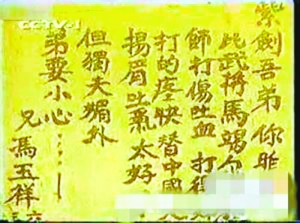 CCTV-1
紫劍吾弟你昨
比武将馬竭尔
師打傷吐血打得
打的痊快督中國
揚眉吐氣太好
但獨夫媚外
弟要小心……
兄馮玉祥